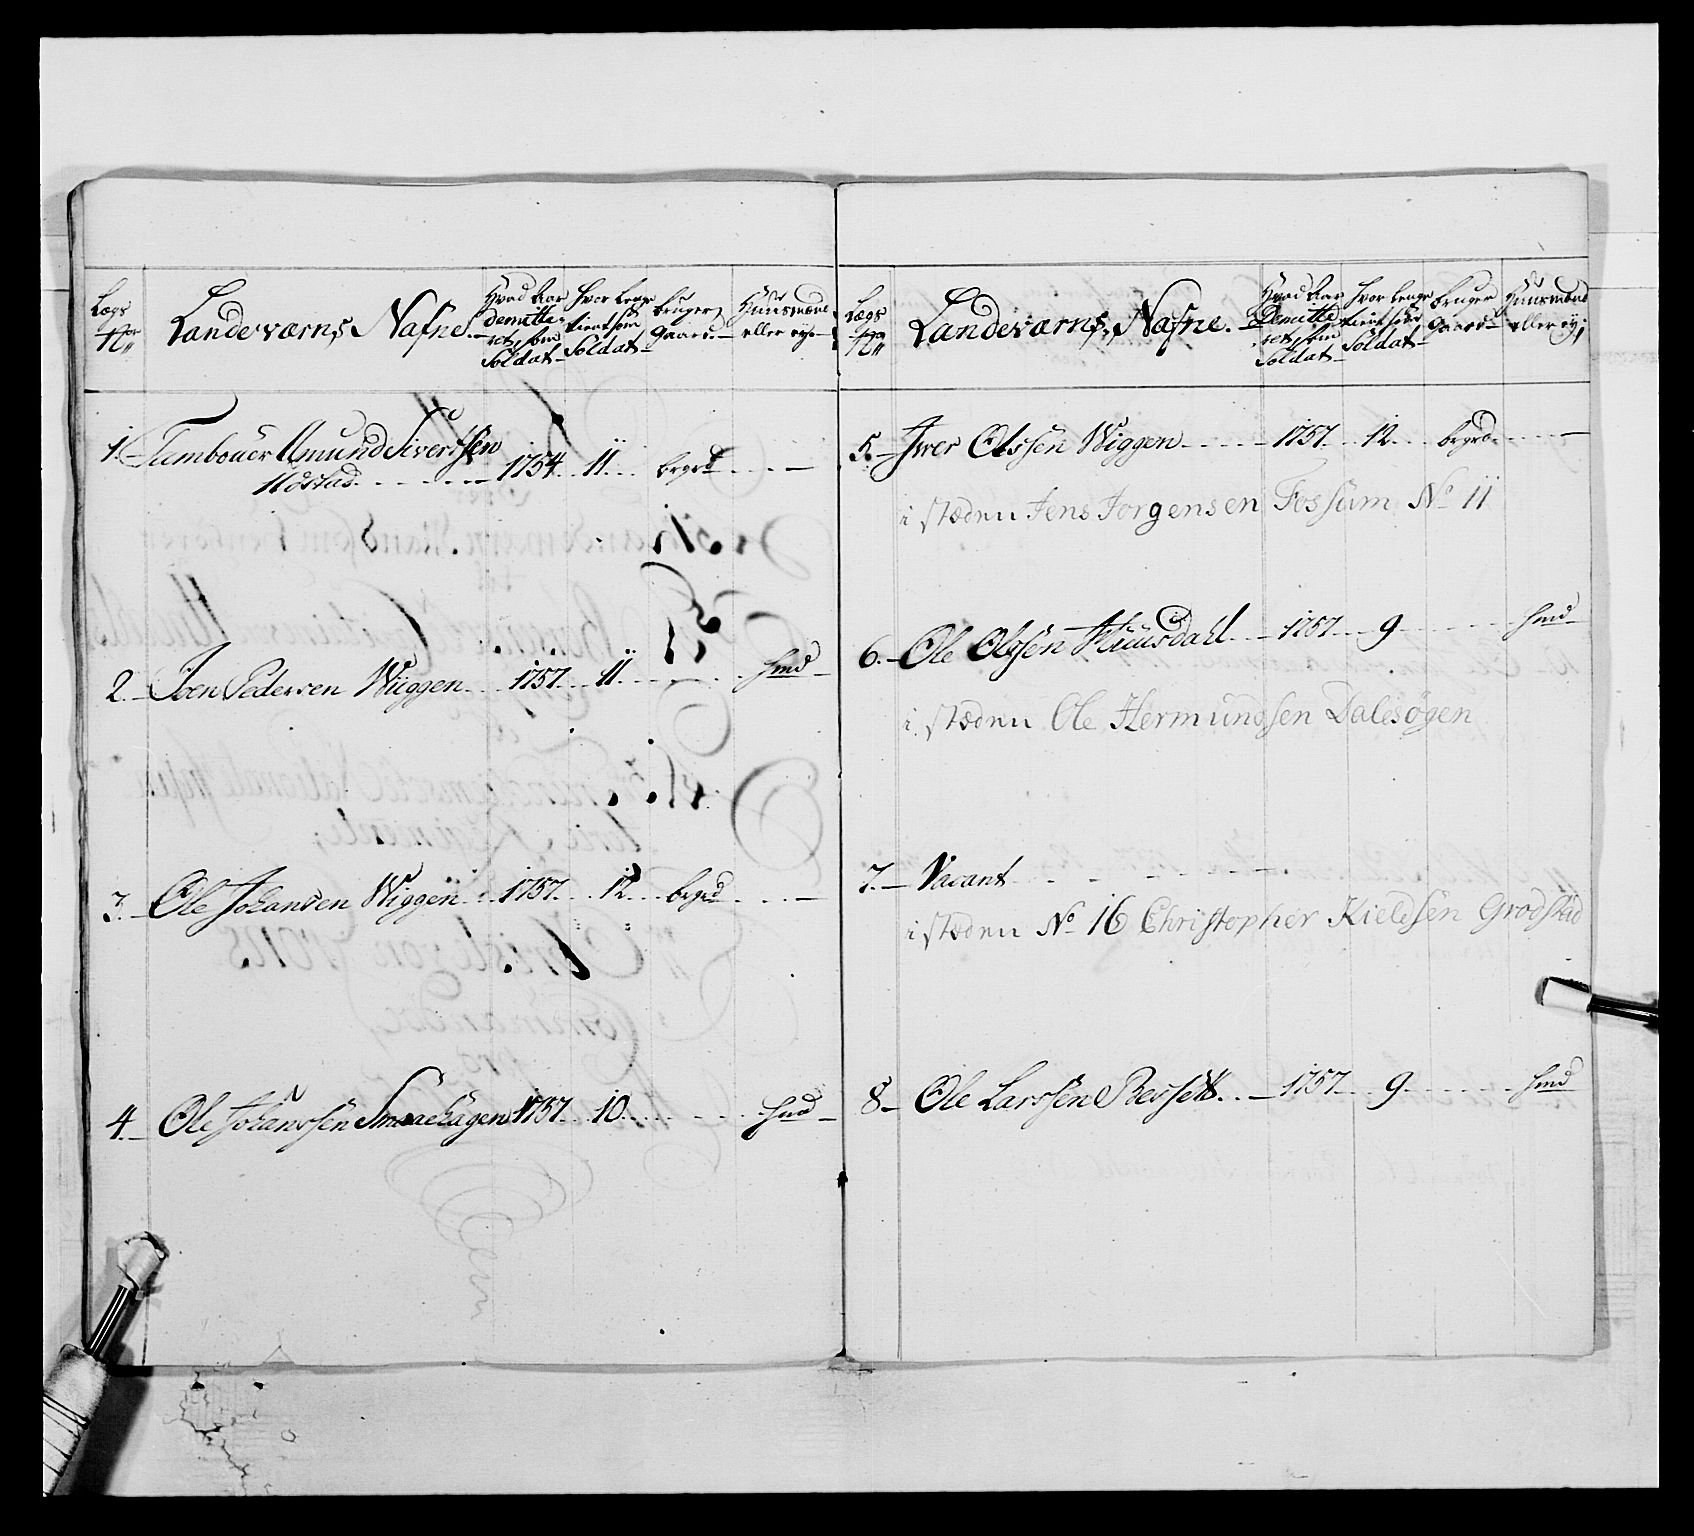 Lægs
No
Landeværns Nafne.
Hvad Aar
demitte-
ret som
Soldat
Hvor lenge
tient som
Soldat
bruger
Gaard.
Huusmænd
eller ey
1. Tambouer Amund Sivertsen
Udstad 1754. 11. brgrd
2. Joen Pedersen Wiggen 1757. 11. hmd
3. Ole Johansen Wiggen 1757. 12. brgrd
4. Ole Johanssen Smaaehagen 1757. 10. hmd
Lægs
No
Landeværns Nafne.
Hvad Aar
Demitte
ret, som
Soldat
Hvor lenge
tient som
Soldat
bruger
Gaard
Huusmænd
eller ey
5. Iver Olssen Wiggen 1757. 12. brgrd.
i stæden Jens Jorgensen Fossum No 11
6. Ole Olssen Huusdahl 1757. 9. hmd
i stæden Ole Hermundsen Dalesøgen
7. Vacant
i stæden No 16 Christopher Kieldsen Grodstad
8 Ole Larssen 1757. 9. hmd